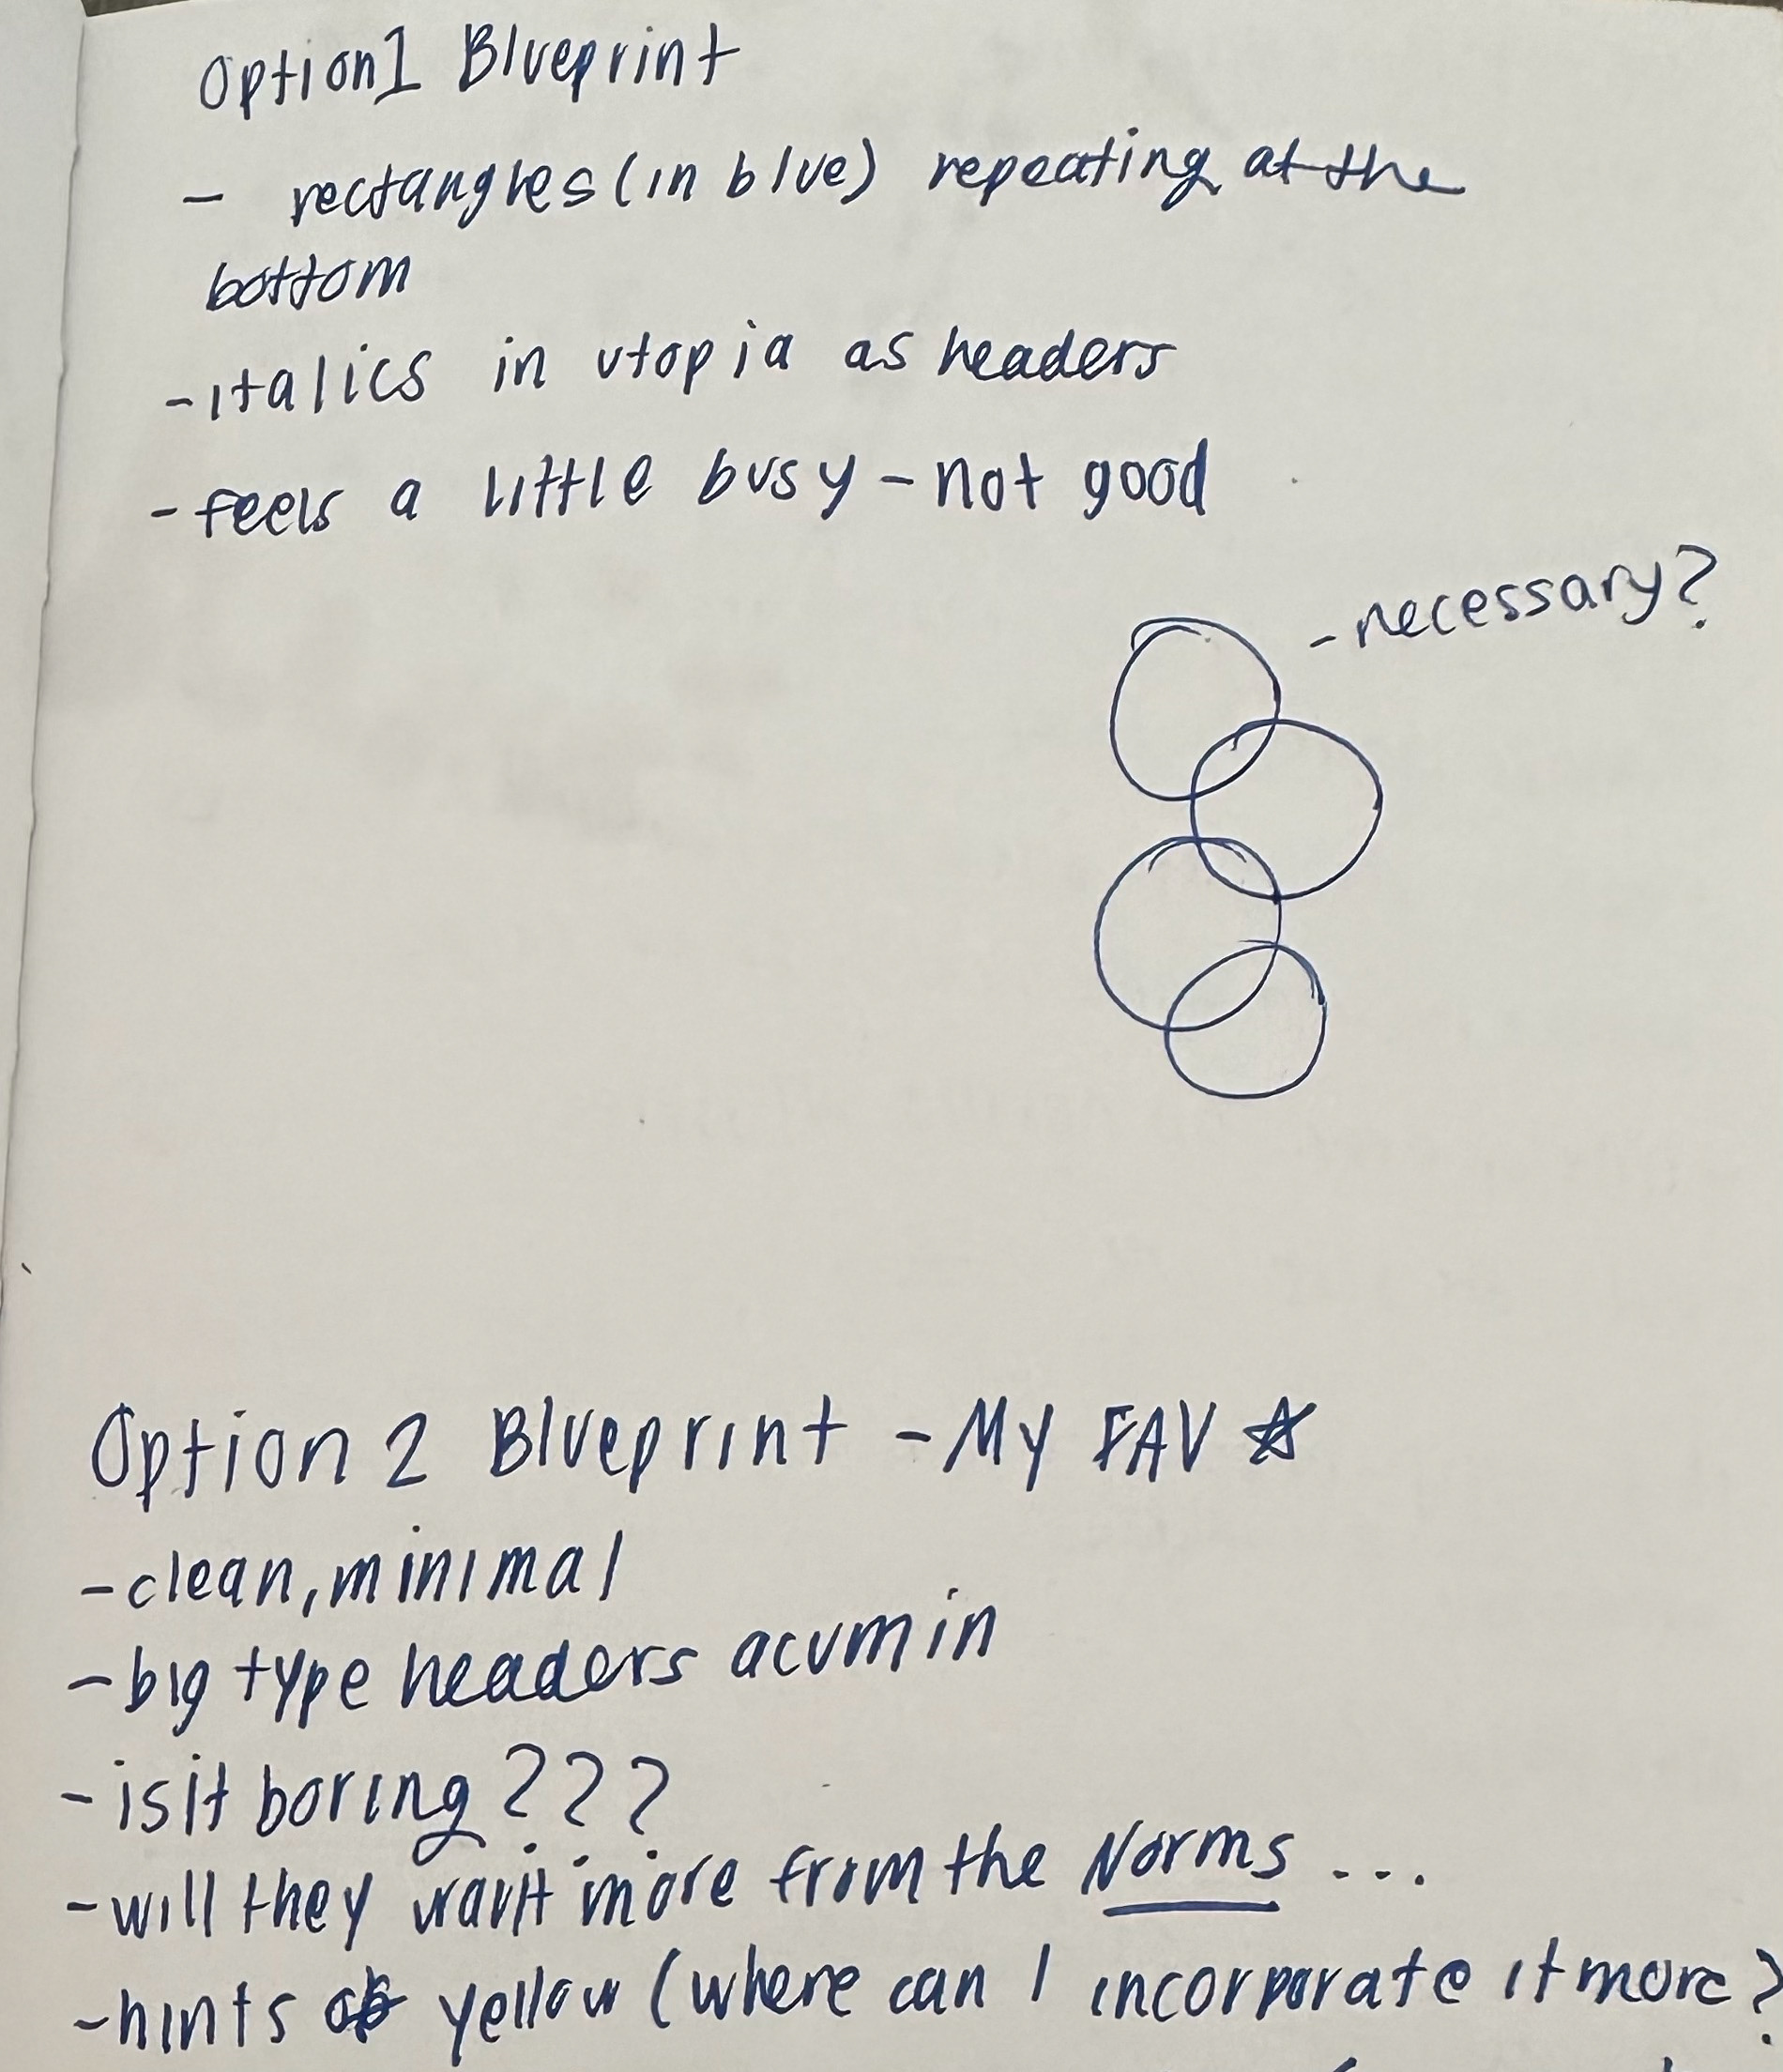 Option 1 Blueprint
- rectangles (in blue) repeating at the
bottom
- italics in utopia as headers
- feels a little busy - not good
- necessary?
Option 2 Blueprint - My FAV ☆
- clean, minimal
- big type headers acumin
- is it boring ???
- will they want more from the Norms ...
- hints of yellow (where can I incorporate it more?